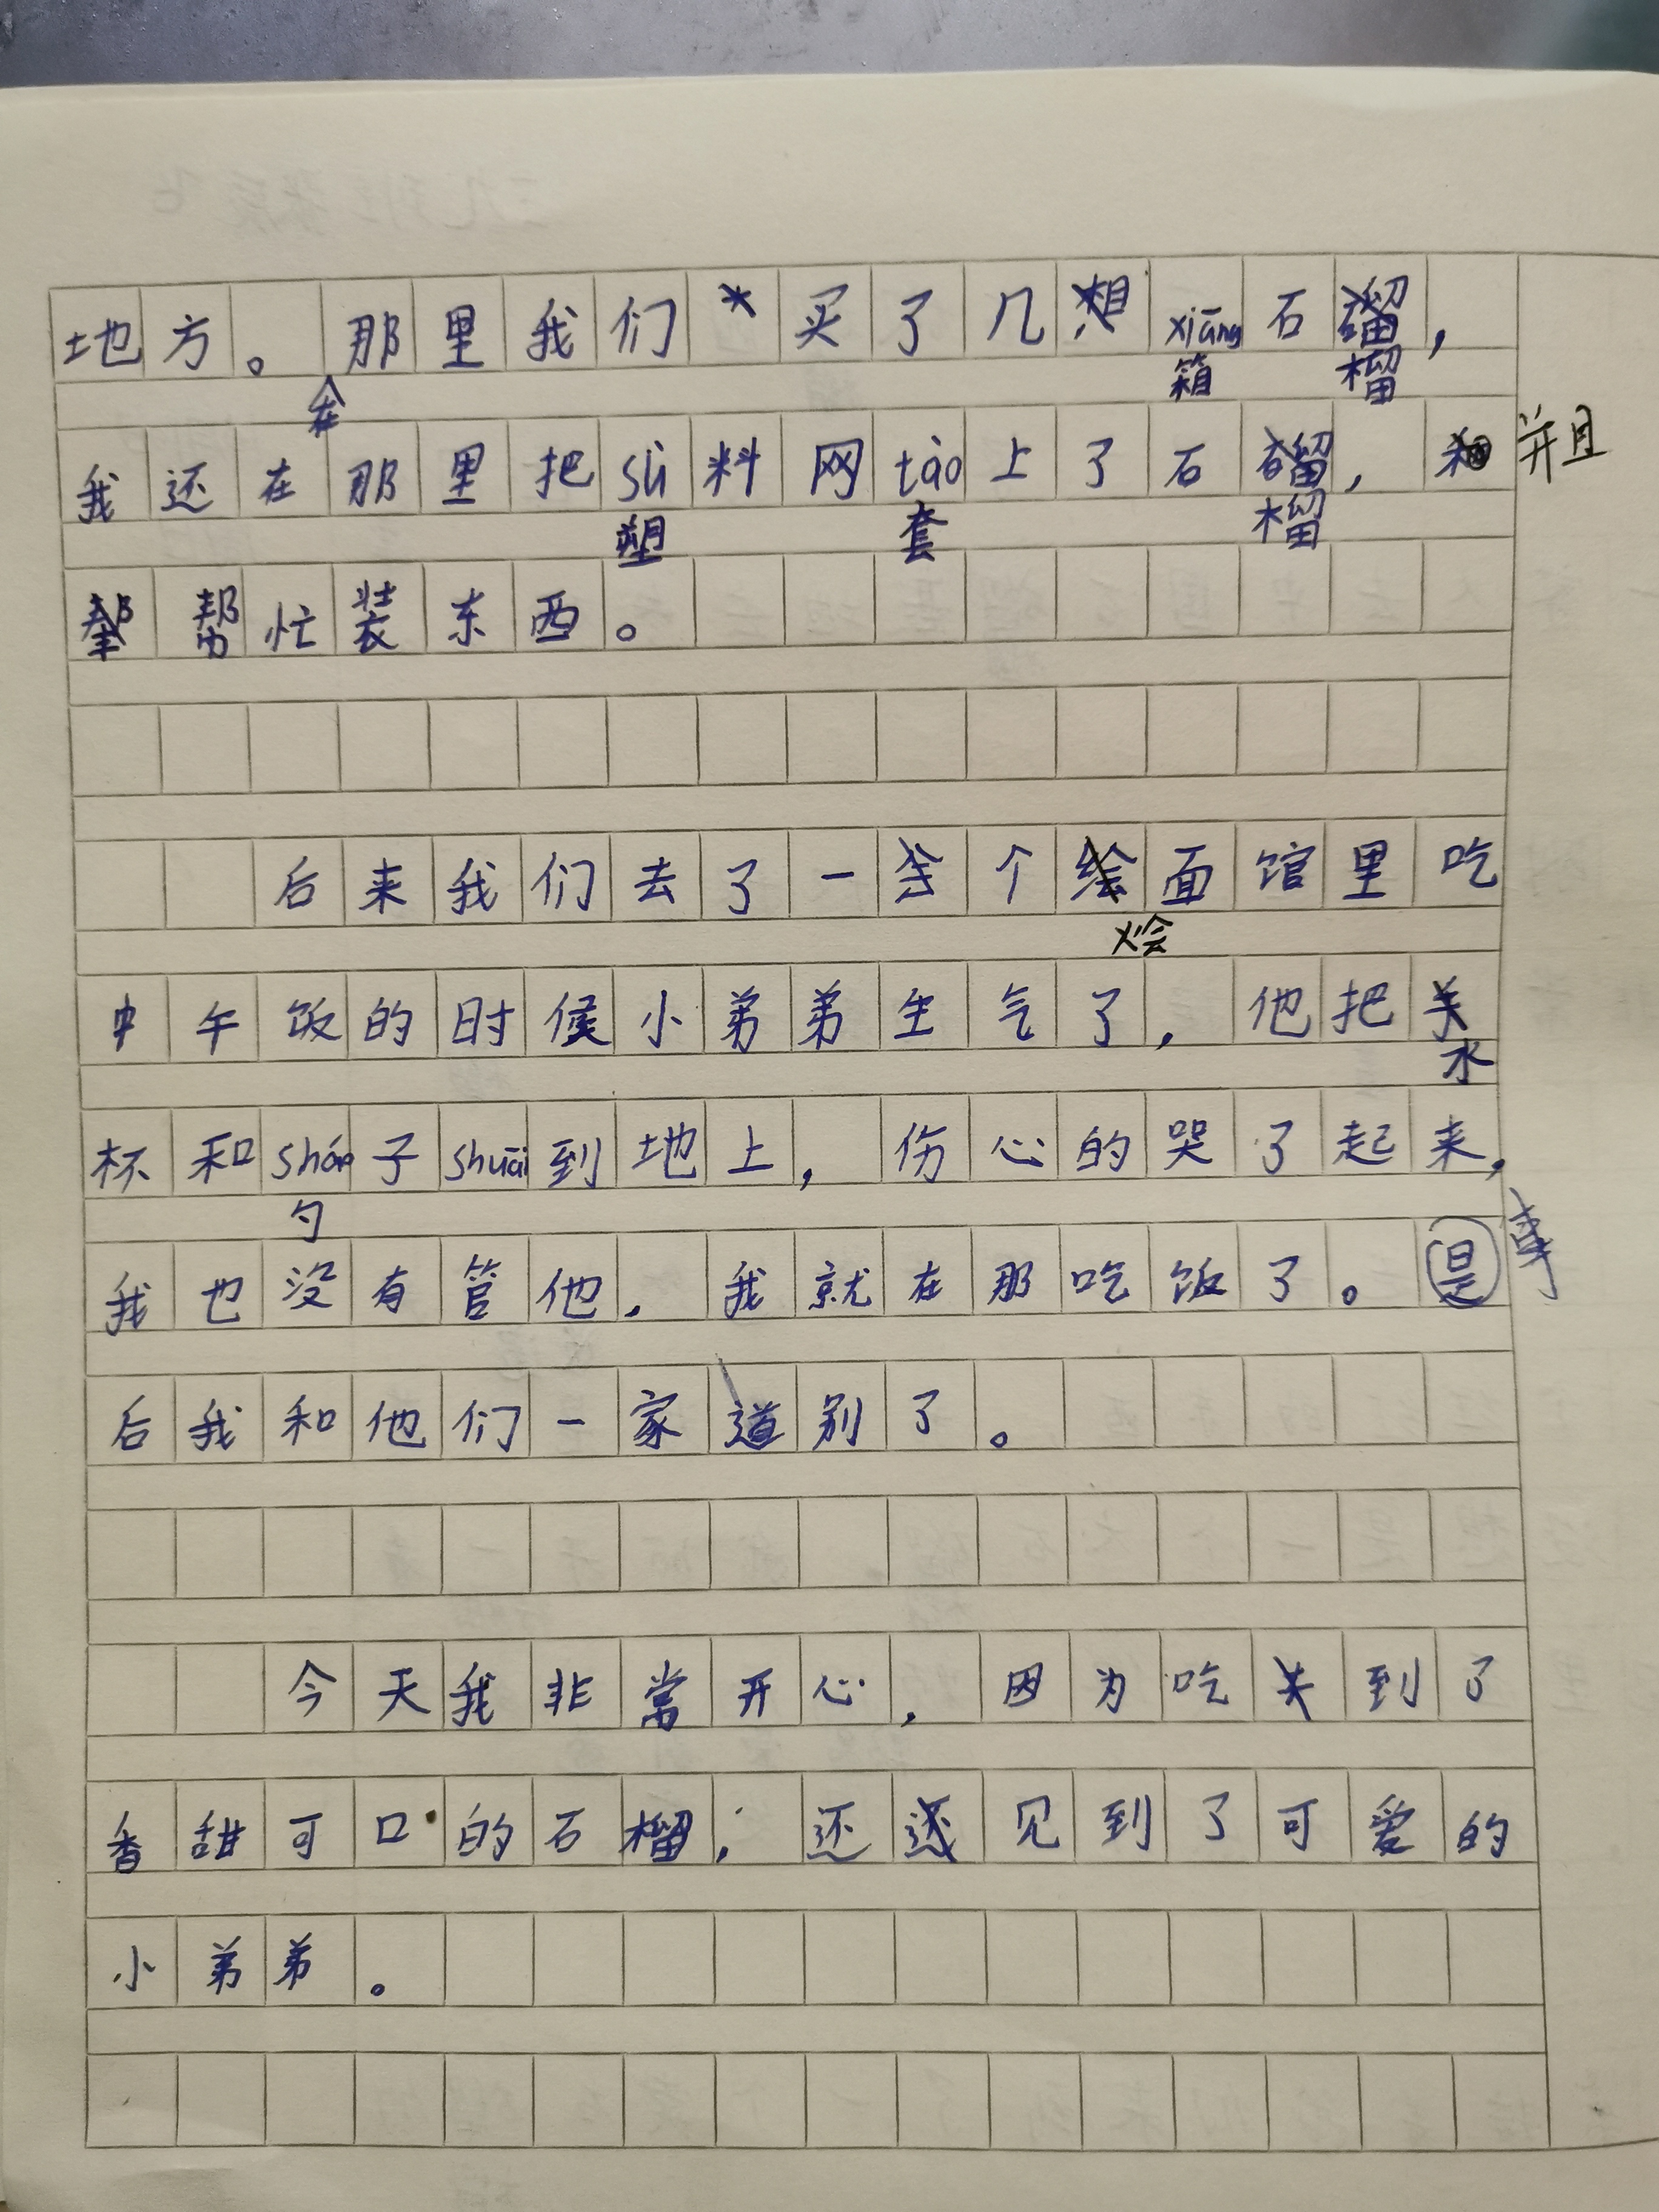 地方。那里我们买了几xiāng石榴，
在
箱 榴
我还在那里把sù料网tào上了石榴，并且
塑 套 榴
帮忙装东西。
后来我们去了一个绘面馆里吃
烩
中午饭的时候小弟弟生气了，他把
水
杯和sháo子shuāi到地上，伤心的哭了起来，
勺
我也没有管他，我就在那吃饭了。是事
后我和他们一家道别了。
今天我非常开心，因为吃到了
香甜可口的石榴，还见到了可爱的
小弟弟。